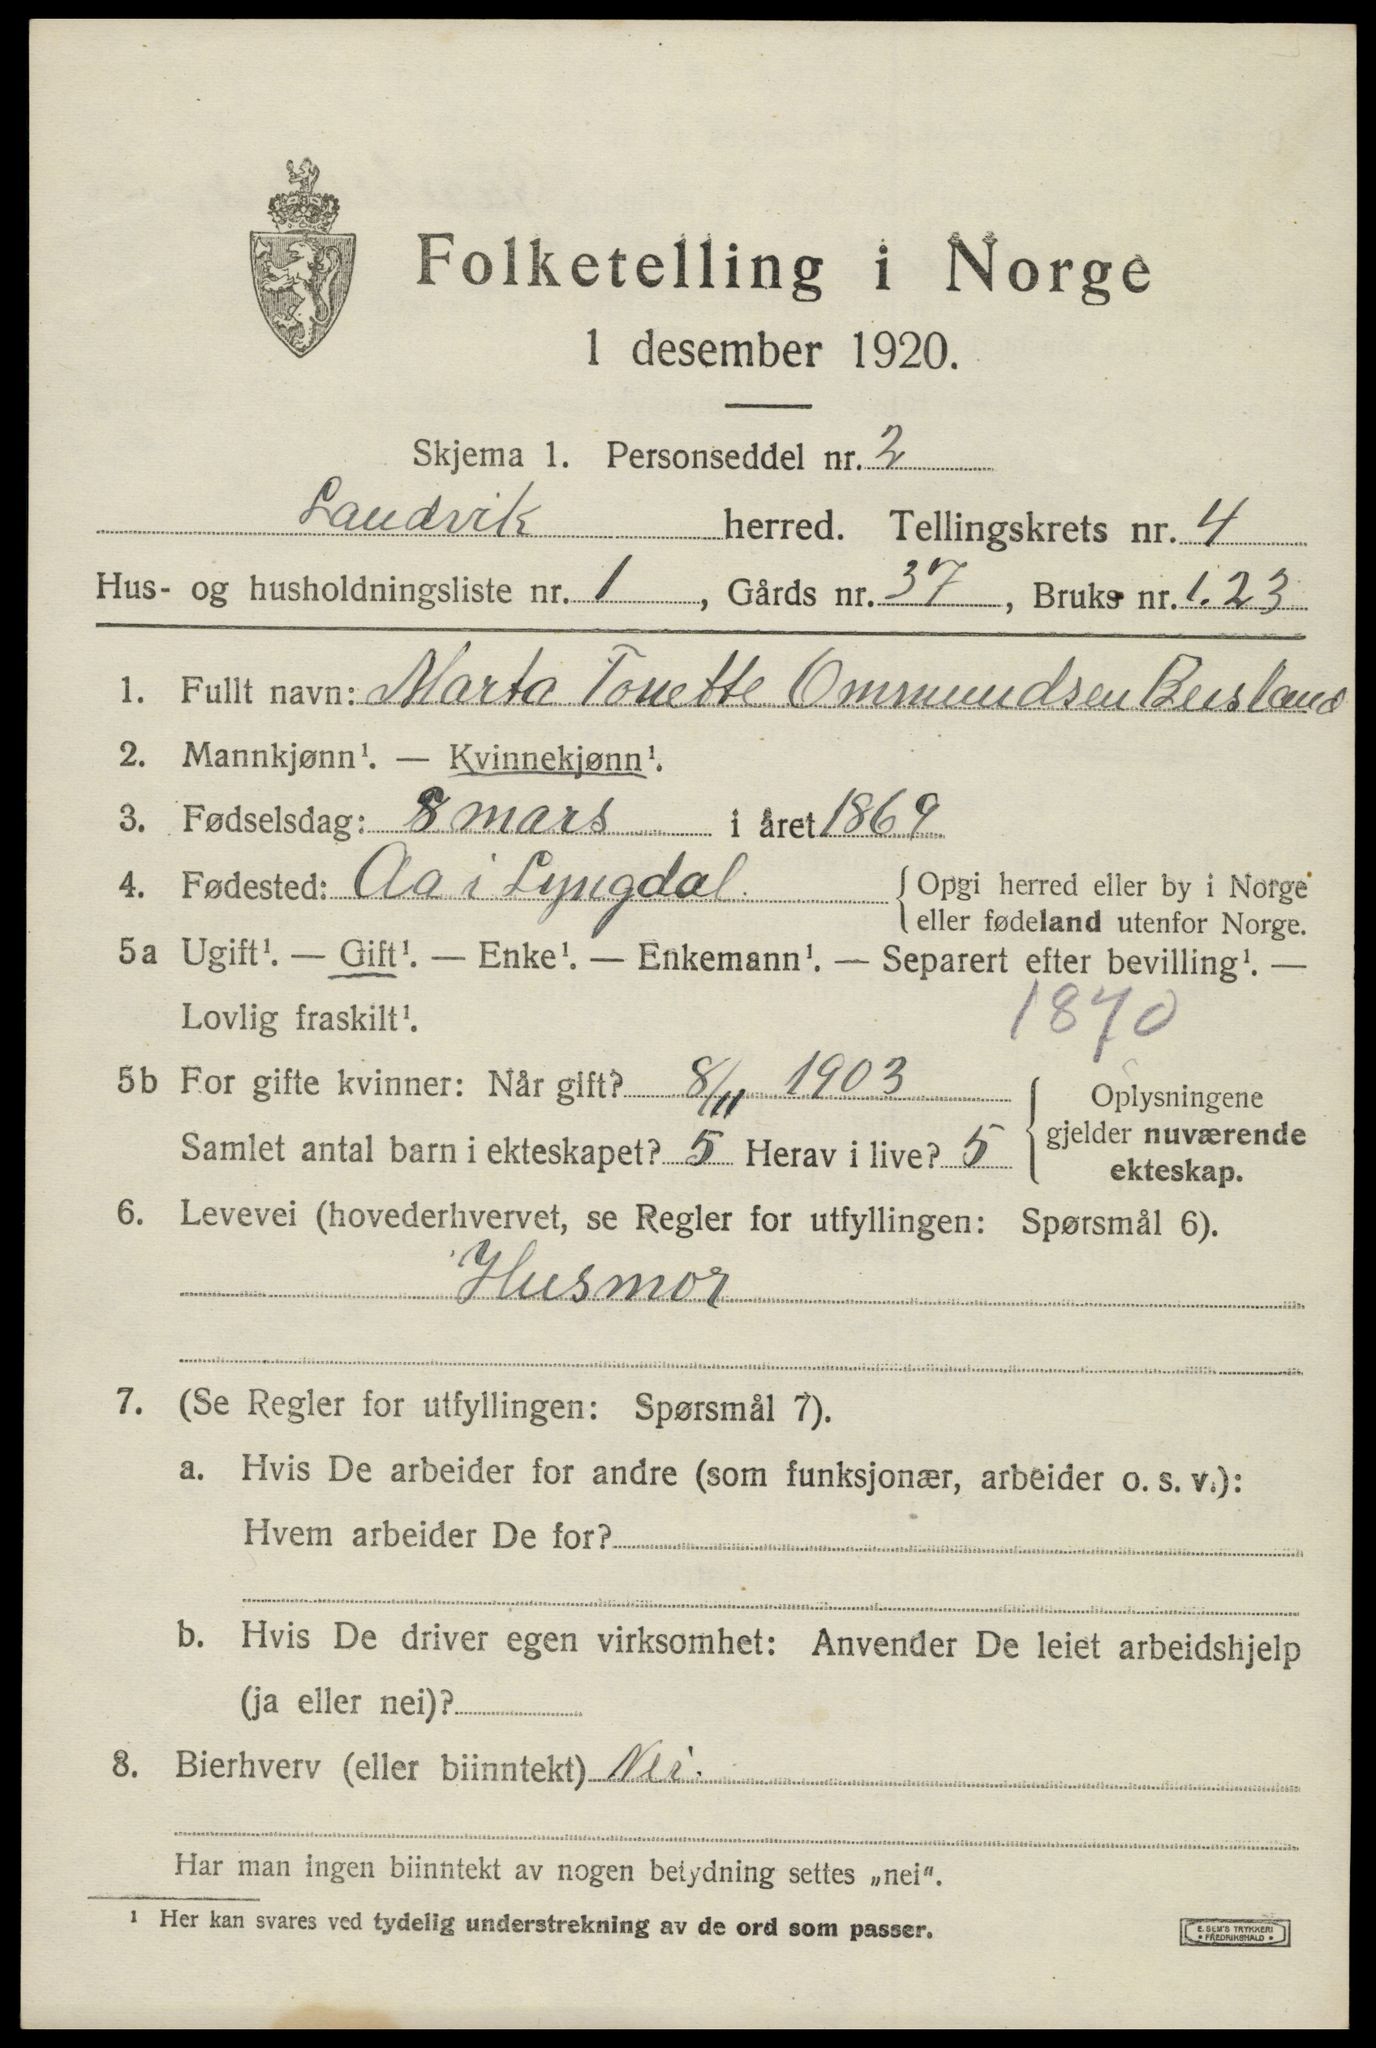 Folketelling i Norge
1 desember 1920.
Skjema 1. Personseddel nr. 2
Landvik herred. Tellingskrets nr. 4
Hus- og husholdningsliste nr. 1, Gårds nr. 37, Bruks nr. 1.23
1. Fullt navn: Marta Tonette Ommundsen Beisland
2. Mannkjønn¹. — Kvinnekjønn¹.
3. Fødselsdag: 8 mars i året 1869
4. Fødested: Aa i Lyngdal. {Opgi herred eller by i Norge
eller fødeland utenfor Norge.
5a Ugift¹. — Gift¹. — Enke¹. — Enkemann¹. — Separert efter bevilling¹. —
Lovlig fraskilt¹. 1870
5b For gifte kvinner: Når gift? 8/11 1903 {Oplysningene
gjelder nuværende
Samlet antal barn i ekteskapet? 5 Herav i live? 5
ekteskap.
6. Levevei (hovederhvervet, se Regler for utfyllingen: Spørsmål 6).
Husmor
7. (Se Regler for utfyllingen: Spørsmål 7).
a. Hvis De arbeider for andre (som funksjonær, arbeider o. s. v.):
Hvem arbeider De for?
b. Hvis De driver egen virksomhet: Anvender De leiet arbeidshjelp
(ja eller nei)?
8. Bierhverv (eller biinntekt) Nei.
Har man ingen biinntekt av nogen betydning settes „nei".
¹ Her kan svares ved tydelig understrekning av de ord som passer.
E. SEM'S TRYKKERI
• FREDRIKSHALD •